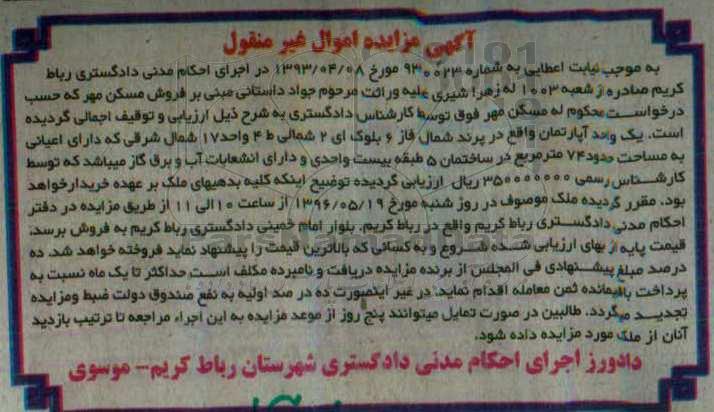 آگهی مزایده اموال غیر منقول
به موجب نیابت اعطایی به شماره ۹۳۰۰۲۳ مورخ ۱۳۹۳/۰۴/۰۸ در اجرای احکام مدنی دادگستری رباط
کریم صادره از شعبه ۱۰۰۳ له زهرا شیری علیه وراثت مرحوم جواد داستانی مبنی بر فروش مسکن مهر که حسب
درخواست محکوم له مسکن مهر فوق توسط کارشناس دادگستری به شرح ذیل ارزیابی و توقیف اجمالی گردیده
است. یک واحد آپارتمان واقع در پرند شمال فاز ۶ بلوک ای ۲ شمالی ط ۴ واحد۱۷ شمال شرقی که دارای اعیانی
به مساحت حدود۷۴ مترمربع در ساختمان ۵ طبقه بیست واحدی و دارای انشعابات آب و برق گاز میباشد که توسط
کارشناس رسمی ۳۵۰۰۰۰۰۰۰ ریال ارزیابی گردیده توضیح اینکه کلیه بدهیهای ملک بر عهده خریدارخواهد
بود. مقرر گردیده ملک موصوف در روز شنبه مورخ ۱۳۹۶/۰۵/۱۹ از ساعت ۱۰الی ۱۱ از طریق مزایده در دفتر
احکام مدنی دادگستری رباط کریم واقع در رباط کریم. بلوار امام خمینی دادگستری رباط کریم به فروش برسد.
قیمت پایه از بهای ارزیابی شده شروع و به کسانی که بالاترین قیمت را پیشنهاد نماید فروخته خواهد شد. ده
درصد مبلغ پیشنهادی فی المجلس از برنده مزایده دریافت و نامبرده مکلف است حداکثر تا یک ماه نسبت به
پرداخت باقیمانده ثمن معامله اقدام نماید. در غیر اینصورت ده در صد اولیه به نفع صندوق دولت ضبط ومزایده
تجدید میگردد. طالبین در صورت تمایل میتوانند پنج روز از موعد مزایده به این اجراء مراجعه تا ترتیب بازدید
آنان از ملک مورد مزایده داده شود.
دادورز اجرای احکام مدنی دادگستری شهرستان رباط کریم- موسوی